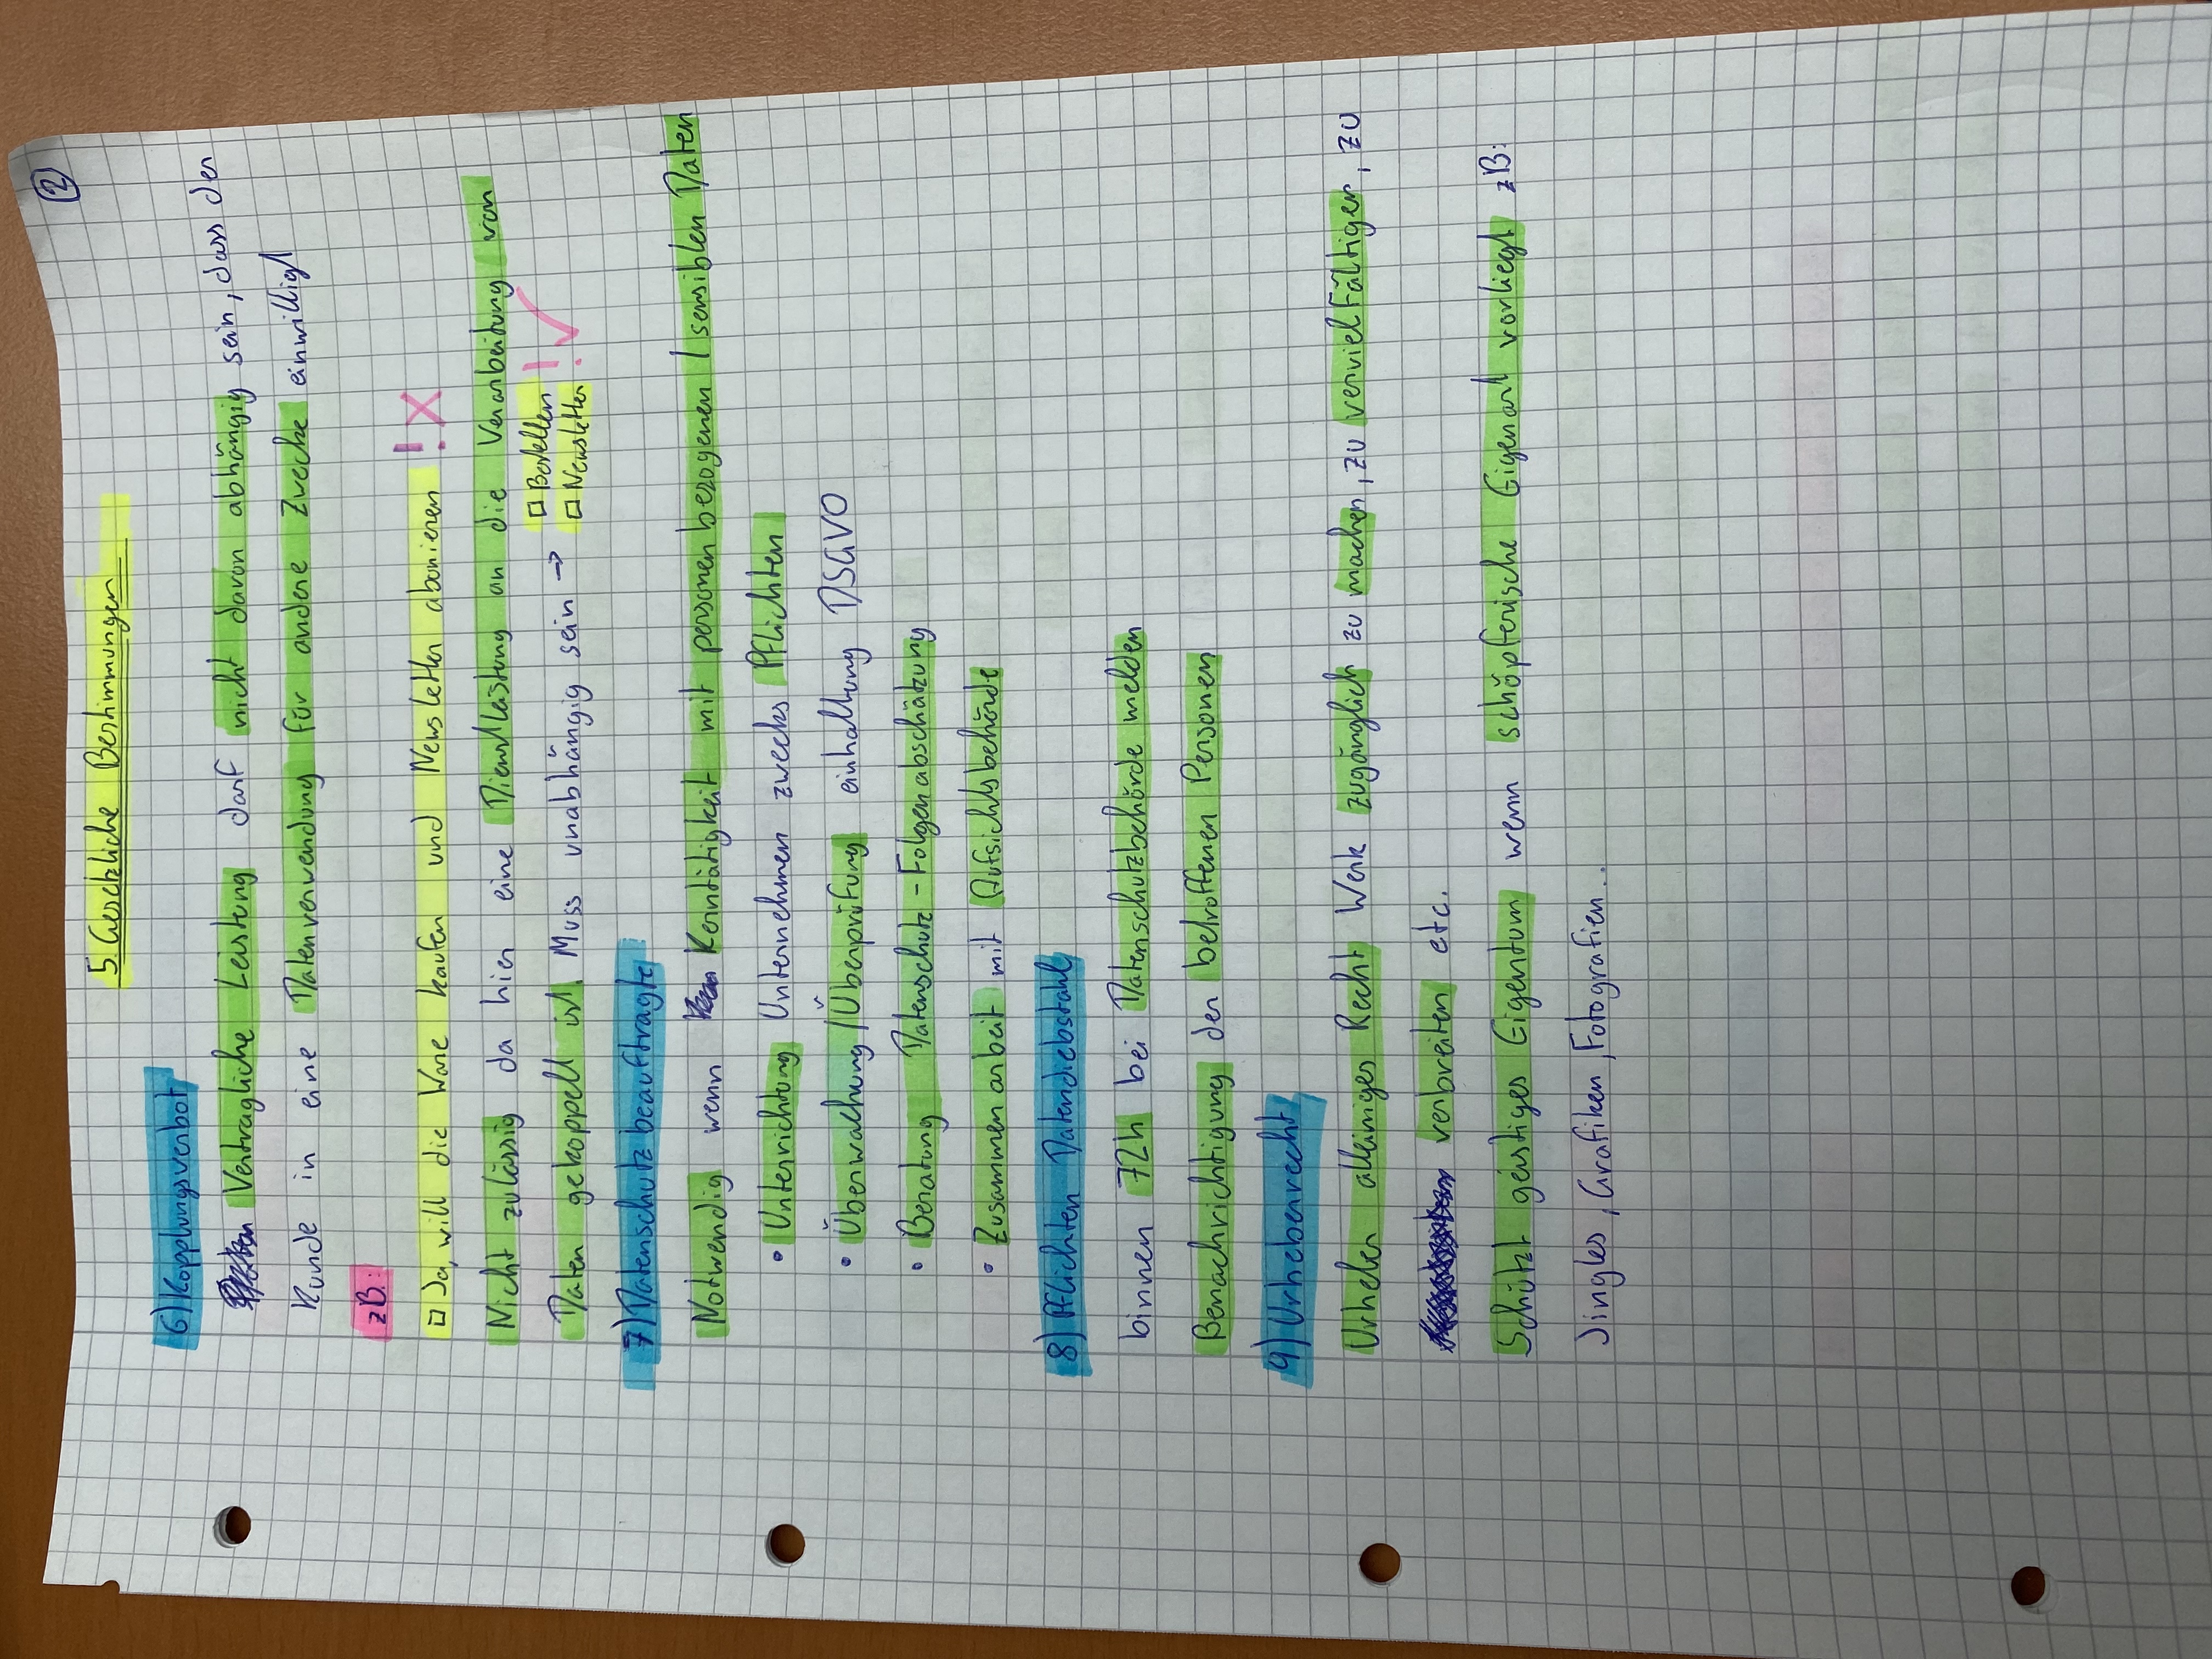 2
5. Gesetzliche Bestimmungen
6) Kopplungsverbot
Vertragliche Leistung darf nicht davon abhängig sein, dass der
Kunde in eine Datenverwendung für andere Zwecke einwilligt
zB.:
□ Ja, will die Ware kaufen und Newsletter abonieren ! X
Nicht zulässig da hier eine Dienstleistung an die Verarbeitung von
Daten gekoppelt ist. Muss unabhängig sein → □ Bestellen ! ✓
□ Newsletter !
7) Datenschutzbeauftragte
Notwendig wenn Kerntätigkeit mit personenbezogenen / sensiblen Daten
• Unterrichtung Unternehmen zwecks Pflichten
• Überwachung / Überprüfung einhaltung DSGVO
• Beratung Datenschutz - Folgenabschätzung
• Zusammenarbeit mit Aufsichtsbehörde
8) Pflichten Datendiebstahl
binnen 72h bei Datenschutzbehörde melden
Benachrichtigung der betroffenen Personen
9) Urheberrecht
Urheber alleiniges Recht Werk zugänglich zu machen, zu vervielfältigen, zu
verbreiten etc.
Schützt geistiges Eigentum wenn schöpferische Eigenart vorliegt zB:
Jingles, Grafiken, Fotografien..